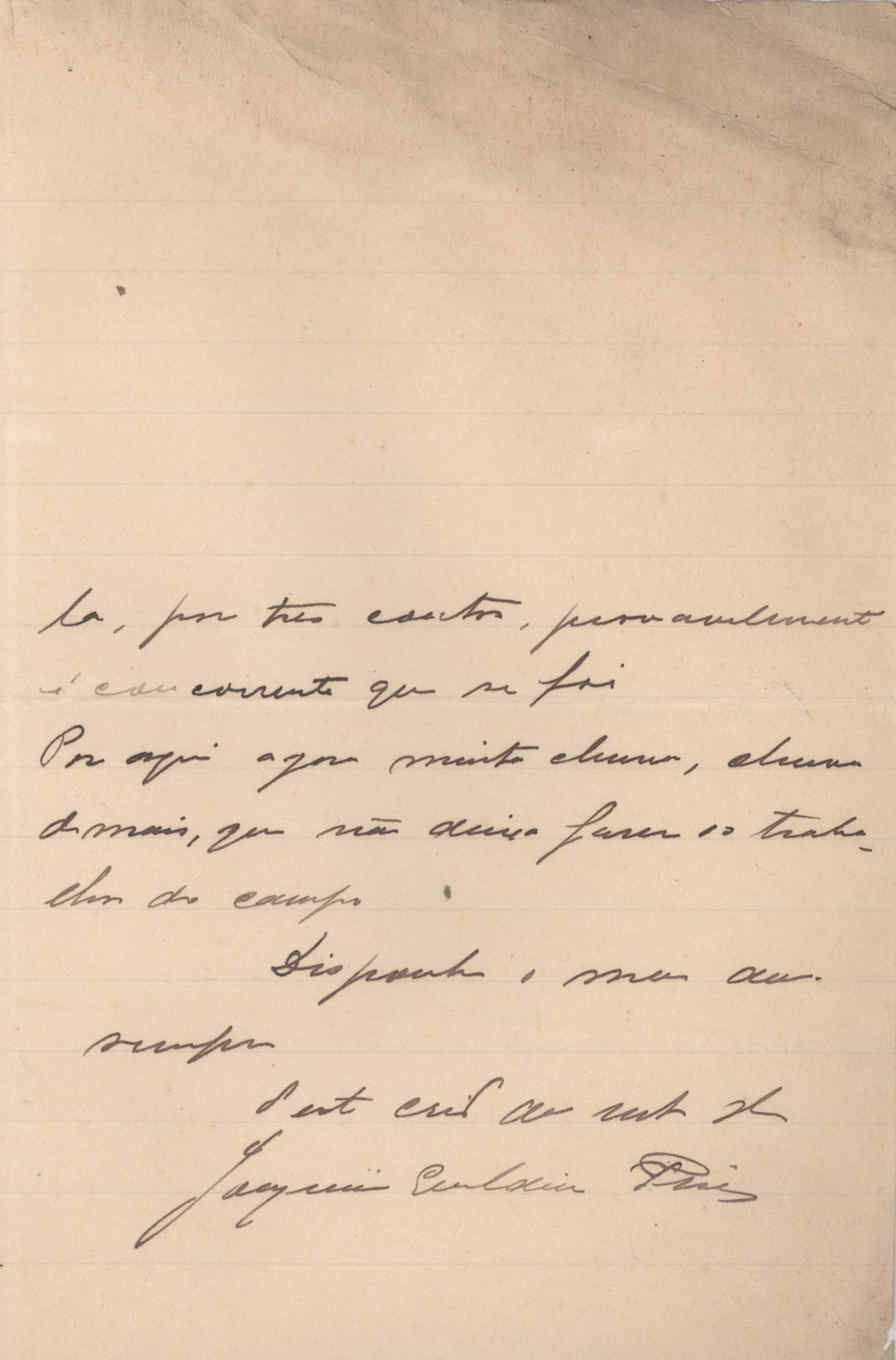 la, por tres contos, provavelmente
é concorrente que se foi
Por aqui agora muita chuva, chuva
demais, que não deixa fazer os traba-
lhos do campo
Disponha o meu
sempre
d'est
Joaquim Pires